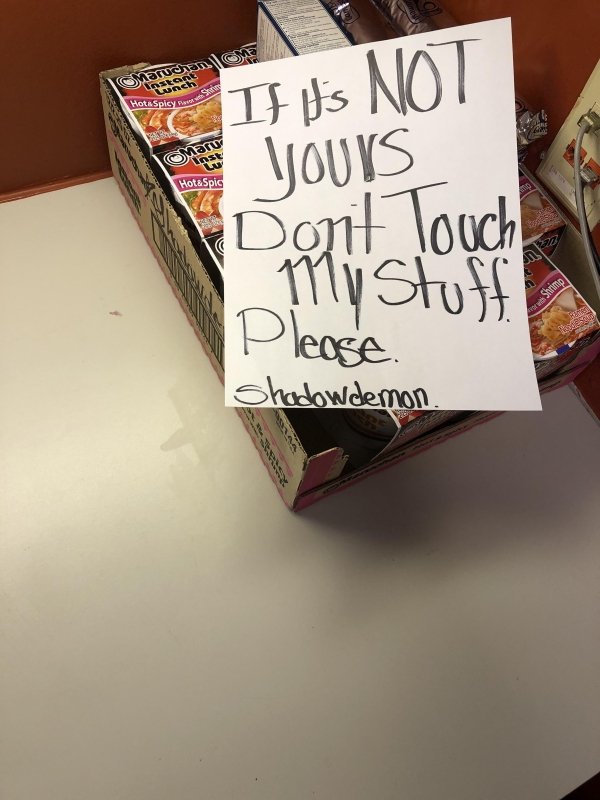 Maruchan
Instant
Lunch
Hot & Spicy Flavor with Shrimp
Maru
Inst
Lu
Hot & Spic
If it's NOT
yours
Don't Touch
My Stuff.
Please.
Shadowdemon.
Shrimp